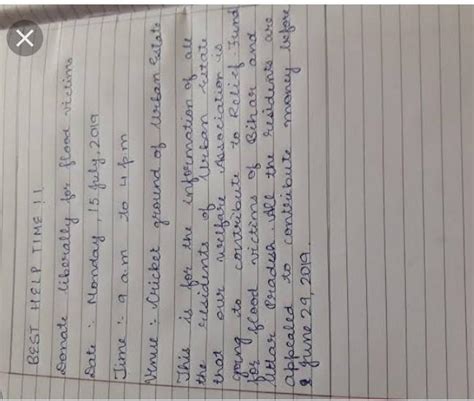 BEST HELP TIME !!
Donate liberally for flood victims
Date :- Monday, 15 July, 2019
Time :- 9 a.m to 4 pm
Venue :- Cricket ground of Urban Estate
This is for the information of all
the residents of Urban Estate
that our welfare Association is
going to contribute to Relief Fund
for flood victims of Bihar and
Uttar Pradesh. All the residents are
appealed to contribute money before
June 29, 2019.